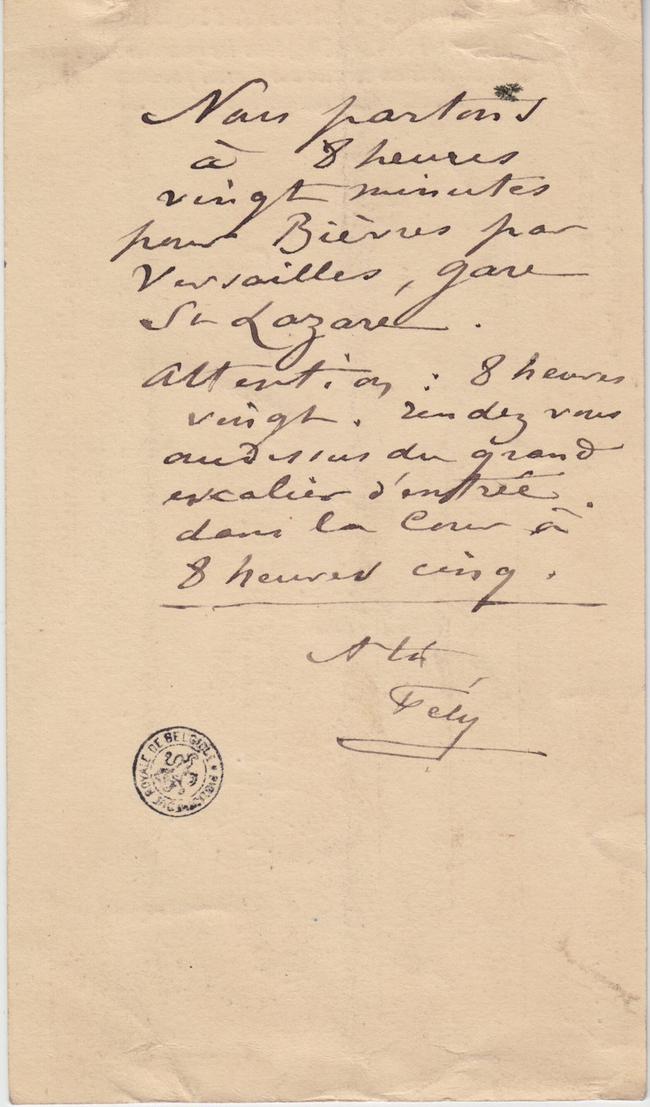 Nous partons
à 8 heures
vingt minutes
pour Bièvres par
Versailles, gare
St Lazare.
Attention : 8 heures
vingt. rendez vous
audessus du grand
escalier d'entrée.
dans la Cour à
8 heures cinq.
A toi
Fély
BIBLIOTHÈQUE ROYALE DE BELGIQUE